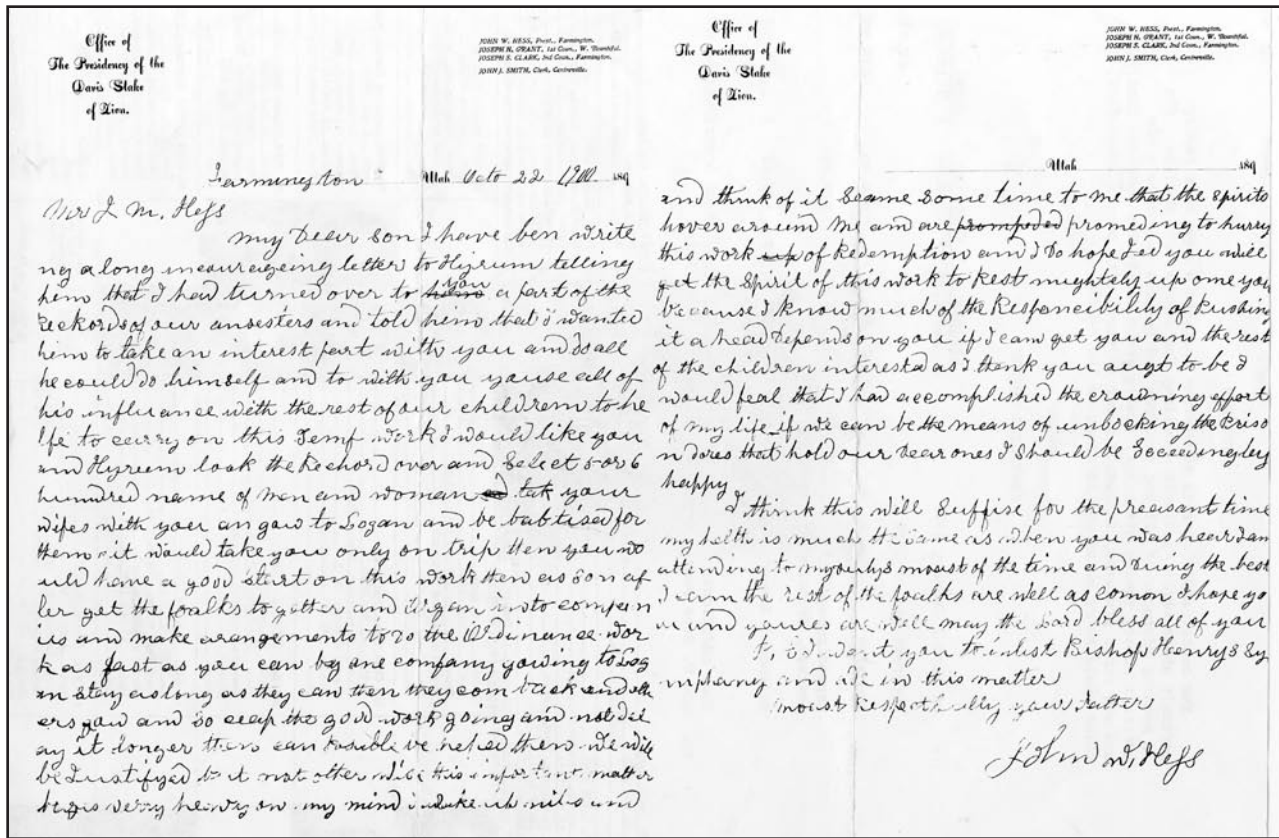 Office of
The Presidency of the
Davis Stake
of Zion.
JOHN W. HESS, Prest., Farmington.
JOSEPH N. GRANT, 1st Coun., W. Bountiful.
JOSEPH S. CLARK, 2nd Coun., Farmington.
JOHN J. SMITH, Clerk, Centreville.
Farmington Utah Octo 22 1900 189
J. M. Hess
my Dear son I have ben write
ng a long incourageing letter to Hyrum telling
him that I had turned over to you a part of the
Reckords of our ansesters and told him that I wanted
him to take an interest part with you and do all
he could do himself and to with you youse all of
his influance with the rest of our children to he
lp to carry on this Temp work I would like you
and Hyrum look the Rechord over and Select 5 or 6
hundred name of men am woman tak your
wifes with you an gow to Logan and be babtised for
them it would take you only on trip then you wo
uld have a good start on this work then as son af
ter get the foalks to gether and organ into compan
ies and make arangements to do the Ordinance wor
k as fast as you can by one company gowing to Log
an stay as long as they can then they com back and oth
ers gow and so ceap the good work going am not del
ay it longer then can posible be helped then we will
be Justifyed but not other wise this important matter
verry heavy on my mind I wake up nites and
Office of
The Presidency of the
Davis Stake
of Zion.
JOHN W. HESS, Prest., Farmington.
JOSEPH N. GRANT, 1st Coun., W. Bountiful.
JOSEPH S. CLARK, 2nd Coun., Farmington.
JOHN J. SMITH, Clerk, Centreville.
Utah 189
and think of it Seame some time to me that the spirits
hover around me am are promped promeding to hurry
this work up of Redemption am I Do hope you will
get the Spirit of this work to Rest mightely up one you
because I know much of the Responcibility of Pushing
it a head Depends on you if I cam get you and the rest
of the children interested as I thank you augt to be I
would feal that I had accomplished the crowning effort
of my life if we can be the means of unlocking the Priso
n dores that hold our Dear ones I Should be Exceedingley
happy
I think this will Suffise for the preasant time
my helth is much the Same as when you was hear I am
attending to my dutys moast of the time and duing the best
I cam the rest of the foalks are well as comon I hope yo
u and youres are well may the Lord bless all of you
P, S I want you to inlist Bishop Henrys Sy
mphany and ade in this matter
moast Respectfully your Fatter
John W. Hess